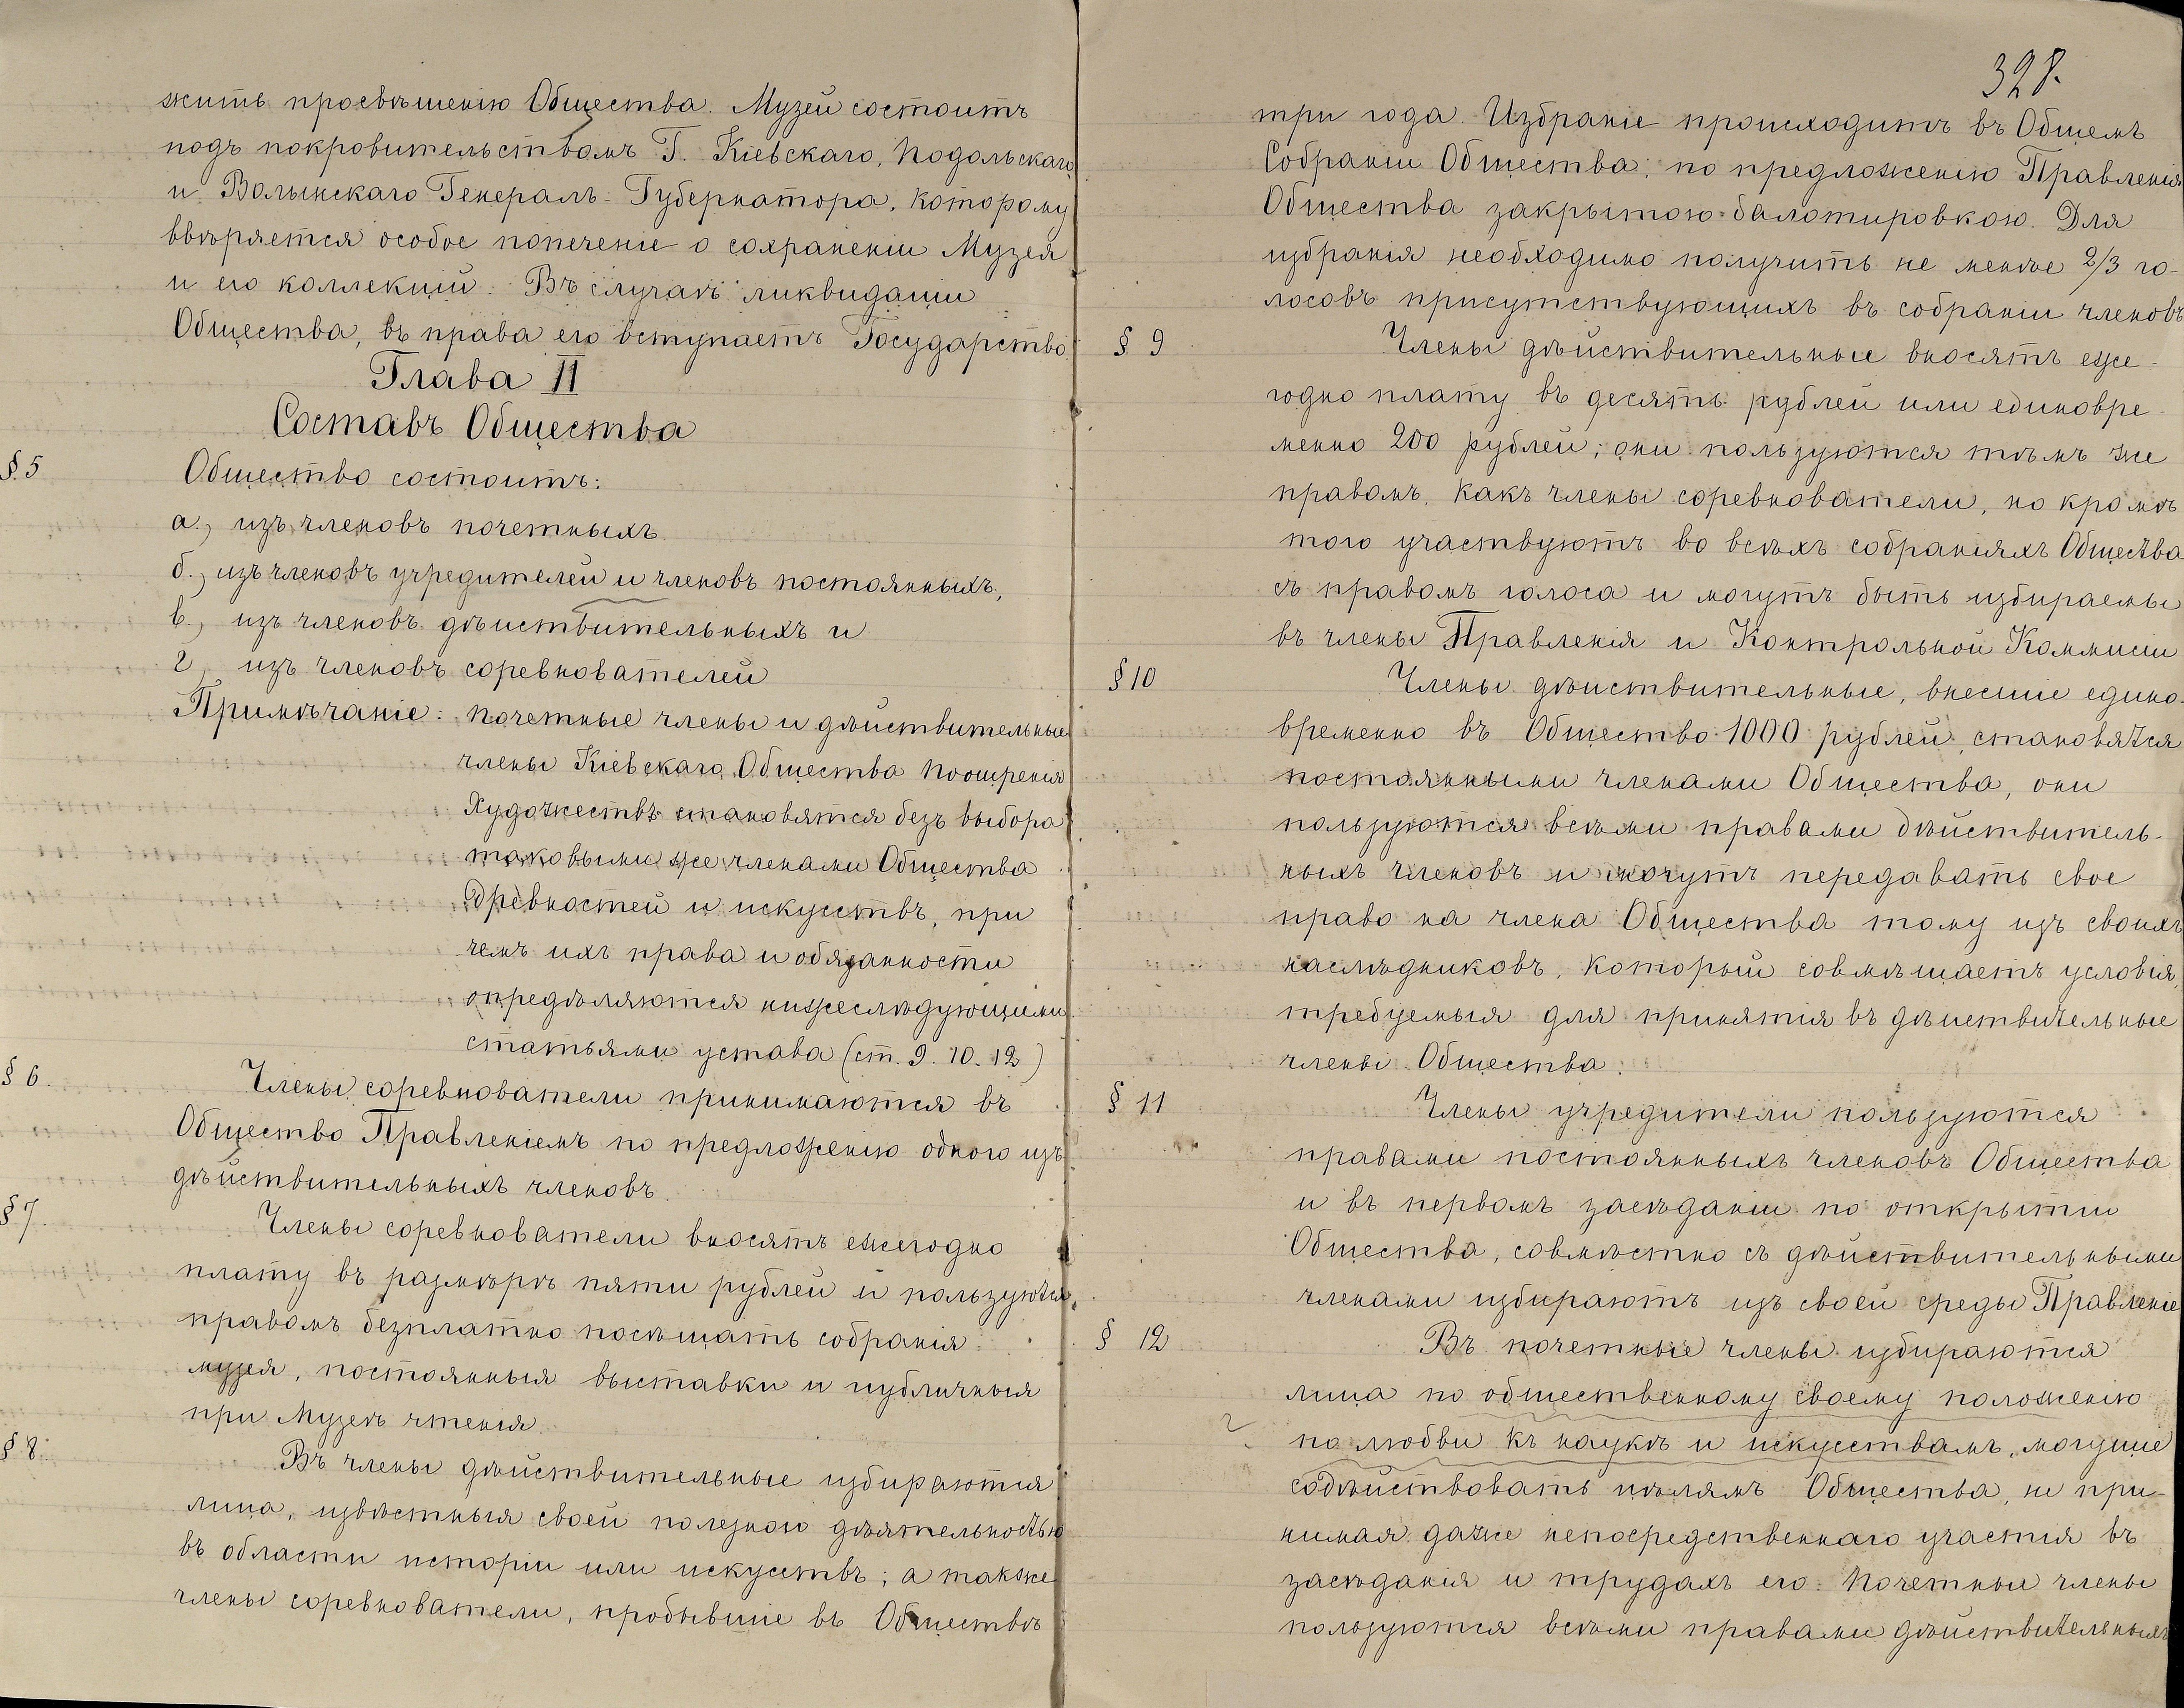 жить просвѣщенію Общества. Музей состоитъ
подъ покровительствомъ Г. Кіевскаго, Подольскаго
и Волынскаго Генералъ-Губернатора, которому
ввѣряется особое попеченіе о сохраненіи Музея
и его коллекцій. Въ случаѣ ликвидаціи
Общества, въ права его вступаетъ Государство.
Глава II
Составъ Общества
§ 5
Общество состоитъ:
а., изъ членовъ почетныхъ.
б., изъ членовъ учредителей и членовъ постоянныхъ,
в., изъ членовъ дѣйствительныхъ и
г., изъ членовъ соревнователей
Примѣчаніе: Почетные члены и дѣйствительные
члены Кіевскаго Общества Поощренія
Художествъ становятся безъ выбора
таковыми же членами Общества
древностей и искусствъ, при
чемъ ихъ права и обязанности
опредѣляются нижеслѣдующими
статьями устава (ст. 9. 10. 12)
§ 6.
Члены соревнователи принимаются въ
Общество Правленіемъ по предложенію одного изъ
дѣйствительныхъ членовъ.
§ 7.
Члены соревнователи вносятъ ежегодно
плату въ размѣрѣ пяти рублей и пользуются
правомъ безплатно посѣщать собранія
музея, постоянныя выставки и публичныя
при Музеѣ чтенія.
§ 8.
Въ члены дѣйствительные избираются
лица, извѣстныя своей полезною дѣятельностью
въ области исторіи или искусствъ; а также
члены соревнователи, пробывшіе въ Обществѣ
328.
три года. Избраніе происходитъ въ Общемъ
Собраніи Общества, по предложенію Правленія
Общества закрытою балотировкою. Для
избранія необходимо получить не менѣе 2/3 го-
лосовъ присутствующихъ въ собраніи членовъ
§ 9
Члены дѣйствительные вносятъ еже-
годно плату въ десять рублей или единовре-
менно 200 рублей; они пользуются тѣмъ же
правомъ, какъ члены соревнователи, но кромѣ
того участвуютъ во всѣхъ собраніяхъ Общества
съ правомъ голоса и могутъ быть избираемы
въ члены Правленія и Контрольной Коммисіи
§ 10
Члены дѣйствительные, внесшіе едино-
временно въ Общество 1000 рублей, становятся
постоянными членами Общества, они
пользуются всѣми правами дѣйствитель-
ныхъ членовъ и могутъ передавать свое
право на члена Общества тому изъ своихъ
наслѣдниковъ, который совмѣщаетъ условія,
требуемыя для принятія въ дѣйствительные
члены Общества.
§ 11
Члены учредители пользуются
правами постоянныхъ членовъ Общества
и въ первомъ засѣданіи по открытіи
Общества, совмѣстно съ дѣйствительными
членами избираютъ изъ своей среды Правленіе
§ 12
Въ почетные члены избираются
лица по общественному своему положенію
по любви къ наукѣ и искусствамъ, могущіе
содѣйствовать цѣлямъ Общества, не при-
нимая даже непосредственнаго участія въ
засѣданія и трудахъ его. Почетные члены
пользуются всѣми правами дѣйствительныхъ